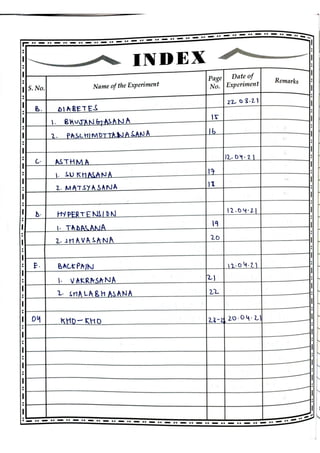 INDEX
S. No. Name of the Experiment Page No. Date of Experiment Remarks
B. DIABETES 22.03.21
1. BHUJANGASANA 15
2. PASCHIMOTTANASANA 16
C. ASTHMA 12.04.21
1. SUKHASANA 17
2. MATSYASANA 18
D. HYPERTENSION 12.04.21
1. TADASANA 19
2. SHAVASANA 20
E. BACKPAIN 12.04.21
1. VAKRASANA 21
2. SHALABHASANA 22
04 KHO-KHO 20.04.21